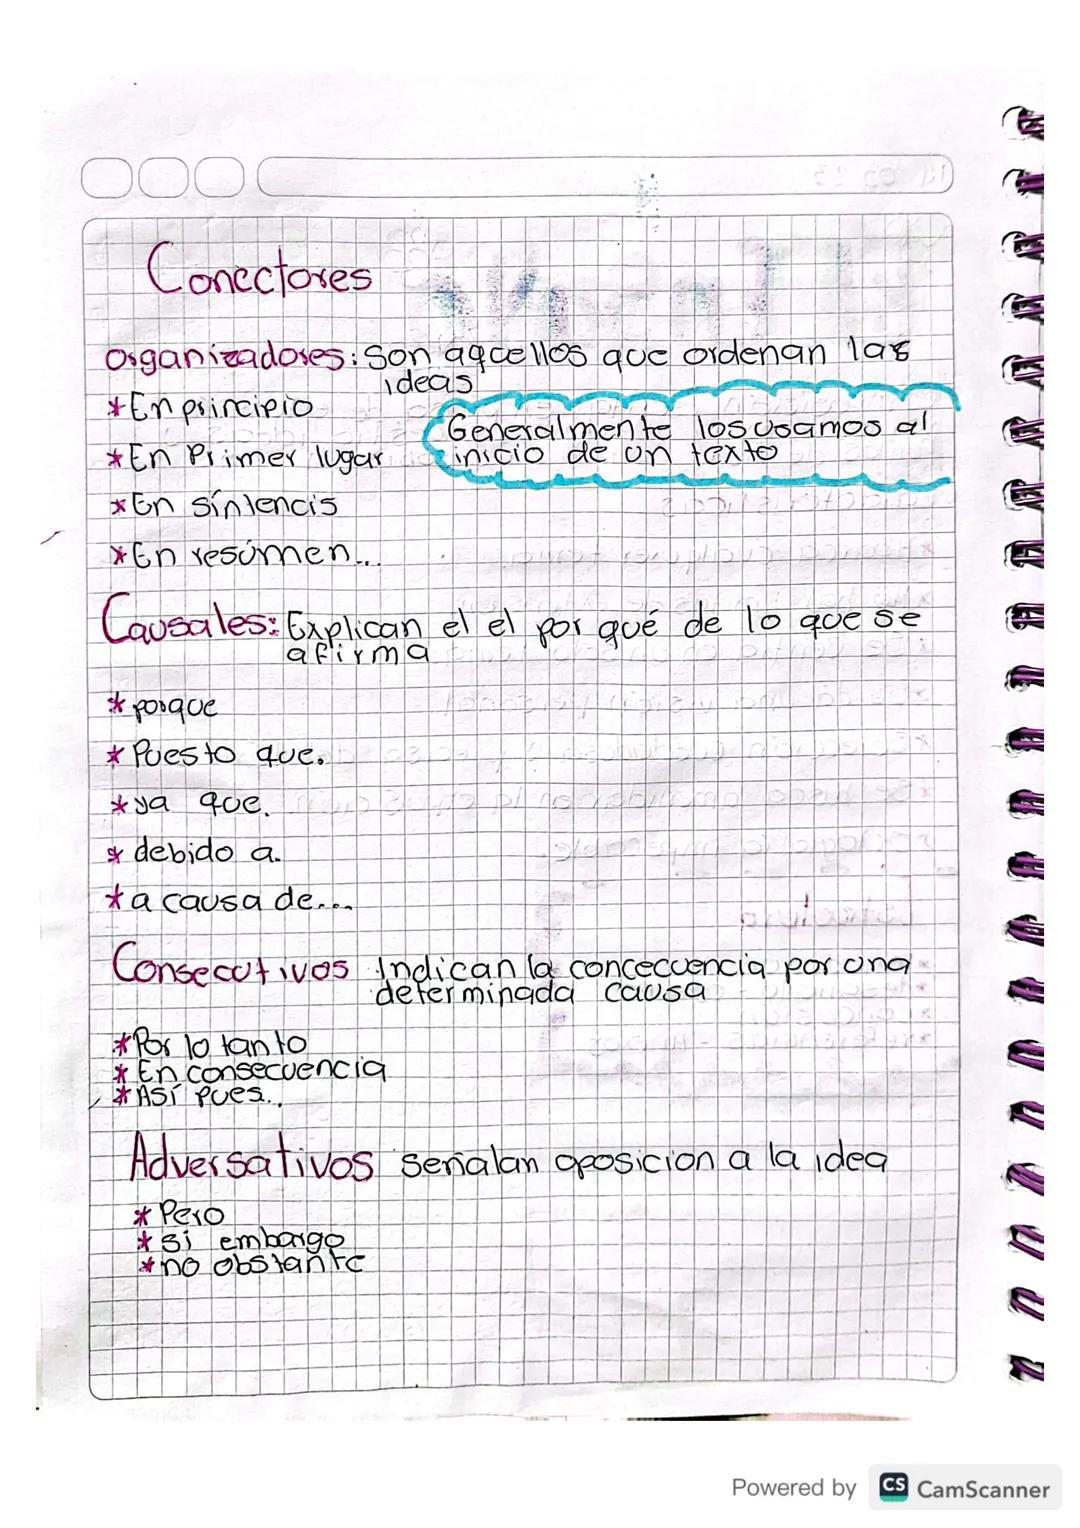 Conectores
Organizadores: Son aqcellos que ordenan las
ideas
* En principio
Generalmente los usamos al
* En Primer lugar
inicio de un texto
* En síntencis
* En resúmen...
Causales: Explican el el por qué de lo que se
afirma
* porque
* Puesto que.
* ya que.
* debido a.
* a causa de....
Consecutivos Indican la concecuencia por una
determinada causa
* Por lo tanto
* En consecuencia
* Así pues..
Adversativos señalan oposicion a la idea
* Pero
* si embargo
* no obstante
Powered by CS CamScanner